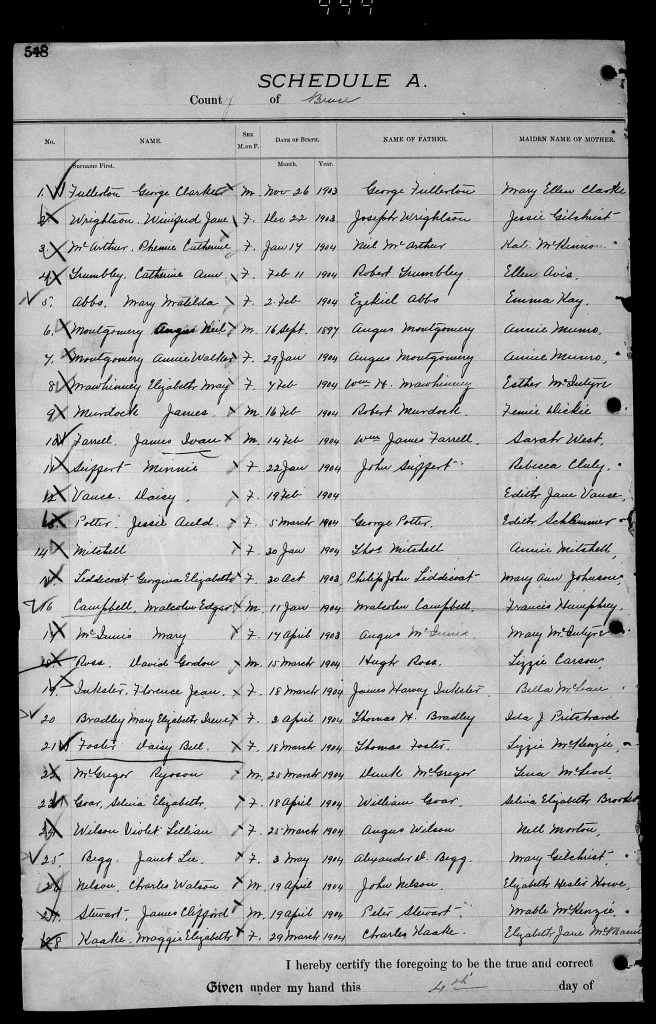 444
548
SCHEDULE A.
County of Bruce
No. NAME. SEX M. OR F. DATE OF BIRTH. NAME OF FATHER. MAIDEN NAME OF MOTHER.
Surname First. Month. Year.
1. Fullerton George Clarke M. Nov 26 1903 George Fullerton Mary Ellen Clarke
2 Wrightson. Winifred Jane F. Dec 22 1903 Joseph Wrightson Jessie Gilchrist
3. McArthur. Phemie Catherine F. Jan 14 1904 Neil McArthur Kat. McKinnon
4 Trumbley. Catherine Ann F. Feb 11 1904 Robert Trumbley Ellen Avis.
5. Abbs. Mary Matilda F. 2 Feb 1904 Ezekiel Abbs Emma Kay.
6. Montgomery Angus Neil M. 16 Sept. 1897 Angus Montgomery Annie Munro.
7. Montgomery Annie Walker F. 29 Jan 1904 Angus Montgomery Annie Munro,
8 Mawhinney Elizabeth May F. 7 Feb 1904 Wm H. Mawhinney Esther McIntyre
9 Murdock James. M. 16 Feb 1904 Robert Murdock. Femie Dickie
10 Farrell. James Ivan M. 14 Feb 1904 Wm James Farrell. Sarah West.
11 Seippert Minnie F. 22 Jan 1904 John Seippert Rebecca Cluly.
12 Vause. Daisy. F. 19 Feb 1904 Edith Jane Vause,
13 Potter. Jessie Auld. F. 5 March 1904 George Potter. Edith Schlemmer
14 Mitchell F. 20 Jan 1904 Thos Mitchell Annie Mitchell,
15 Liddicoat Georgina Elizabeth F. 20 Oct 1903, Philip John Liddicoat Mary Ann Johnson,
16 Campbell, Malcolm Edgar M. 11 Jan 1904 Malcolm Campbell. Francis Humphrey.
17 McInnis Mary F. 17 April 1903 Angus McInnis Mary McIntyre
18 Ross. David Gordon M. 15 March 1904 Hugh Ross. Lizzie Carson,
19. Inkster, Florence Jean. F. 18 March 1904 James Harvey Inkster. Bella McLean
20 Bradley Mary Elizabeth Irene F. 2 April 1904 Thomas H. Bradley Ida J Pritchard
21 Foster Daisy Bell. F. 18 March 1904 Thomas Foster. Lizzie McKenzie,
22 McGregor M. 25 March 1904 Dunk McGregor Tena McLeod.
23 Goar, Selina Elizabeth. F. 18 April 1904 William Goar. Selina Elizabeth
24 Wilson Violet Lillian F. 25 March 1904 Angus Wilson Nell Morton,
25. Begg. Janet Lee. F. 3 May 1904 Alexander D. Begg. Mary Gilchrist.
26 Nelson, Charles Watson M. 19 April 1904 John Nelson. Elizabeth Hester Howe,
27. Stewart. James Clifford M. 19 April 1904 Peter Stewart. Mable McKenzie,
28 Kaake. Maggie Elizabeth F. 29 March 1904 Charles Kaake. Elizabeth Jane
I hereby certify the foregoing to be the true and correct
Given under my hand this 4th day of